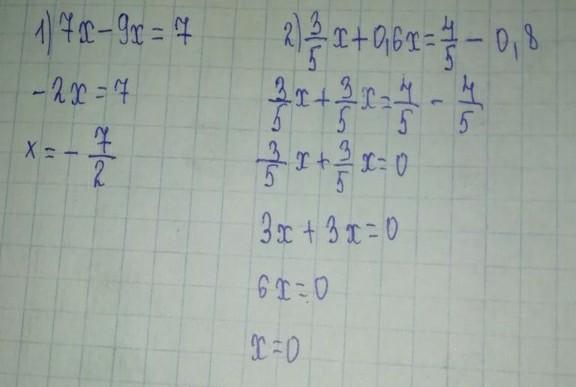 1) 7x - 9x = 7
-2x = 7
x = - 7/2
2) 3/5 x + 0,6x = 4/5 - 0,8
3/5 x + 3/5 x = 4/5 - 4/5
3/5 x + 3/5 x = 0
3x + 3x = 0
6x = 0
x = 0